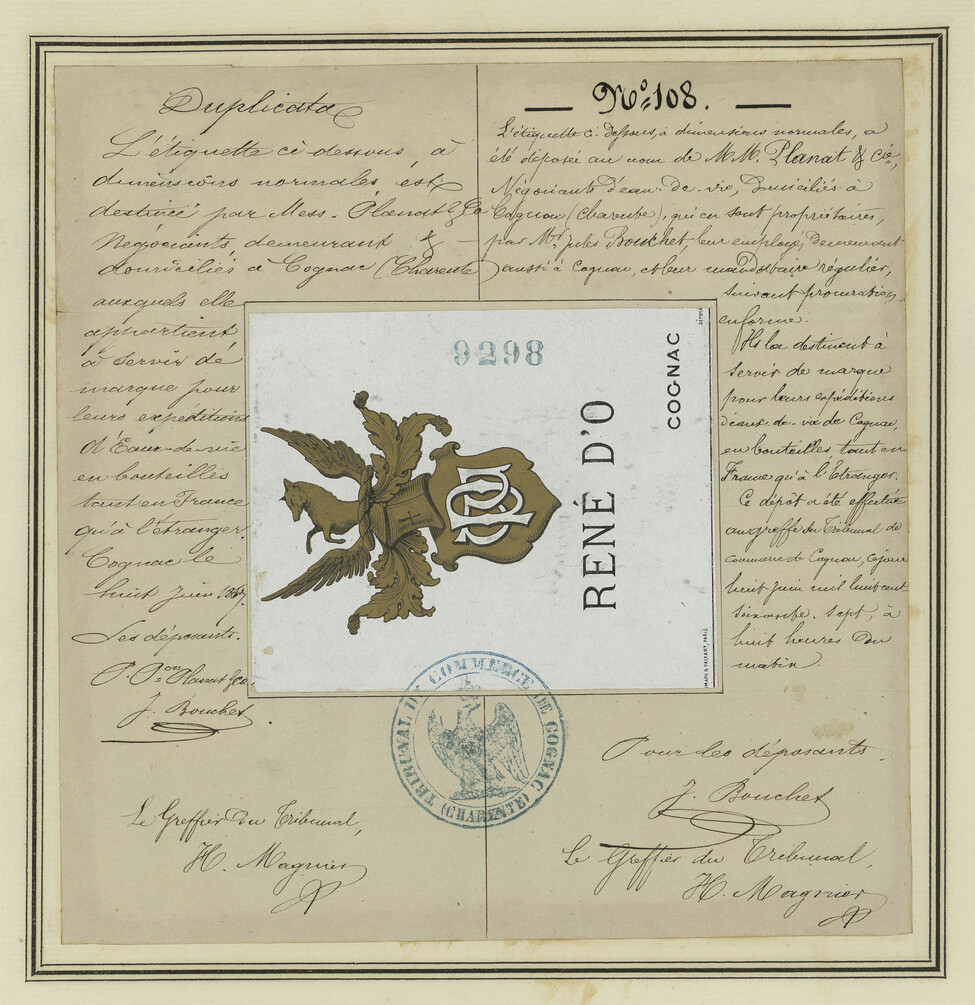 Duplicata
L'étiquette ci dessous, à
dimensions normales, est
destinée par Mess. Planat & Co
Négociants demeurant &
domiciliés à Cognac (Charente)
auxquels elle
appartient
à servir de
marque pour
leurs expéditions
d'Eaux-de-vie
en bouteilles
tant en France
qu'à l'étranger.
Cognac le
huit Juin 1867.
Les déposants.
P. Pon Planat & Co
J. Bouchet
Le Greffier du Tribunal,
H. Magnier
— No 108. —
L'étiquette ci-dessous, à dimensions normales, a
été déposée au nom de M.M. Planat & Cie,
Négociants d'eau-de-vie, domiciliés à
Cognac (Charente), qui en sont propriétaires,
par Mr Jules Bouchet leur employé, demeurant
aussi à Cognac, et leur mandataire régulier,
suivant procuration
en forme.
Ils la destinent à
servir de marque
pour leurs expéditions
d'eaux-de-vie de Cognac,
en bouteilles, tant en
France qu'à l'Etranger.
Ce dépôt a été effectué
au greffe du Tribunal de
commerce de Cognac, ce jour
huit juin mil huit cent
soixante-sept, à
huit heures du
matin.
Pour les déposants.
J. Bouchet
Le Greffier du Tribunal,
H. Magnier
9298
RENÉ D'O
COGNAC
DÉPOSÉ
& PALYART, PARIS
TRIBUNAL DE COMMERCE DE COGNAC
(CHARENTE)